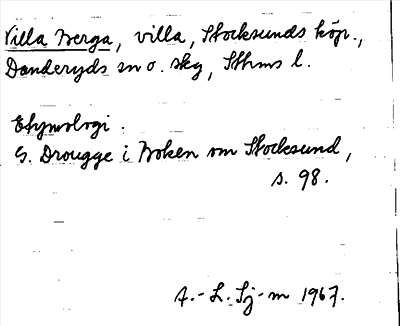 Villa Berga, villa, Stocksunds köp.,
Danderyds sn o. skg, Sthms l.
Etymologi.
G. Drougge i Boken om Stocksund,
s. 98.
A.-L. Sj-m 1967.